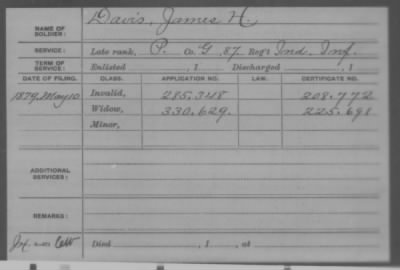 NAME OF SOLDIER: Davis, James H.
SERVICE: Late rank, P. Co. G, 87, Reg't Ind. Inf.
TERM OF SERVICE: Enlisted , 1 Discharged , 1
DATE OF FILING. CLASS. APPLICATION NO. LAW. CERTIFICATE NO.
1879, May 10 Invalid, 285.348 208.772
Widow, 330.629. 225.698
Minor,
ADDITIONAL SERVICES:
REMARKS:
Died , 1 , at